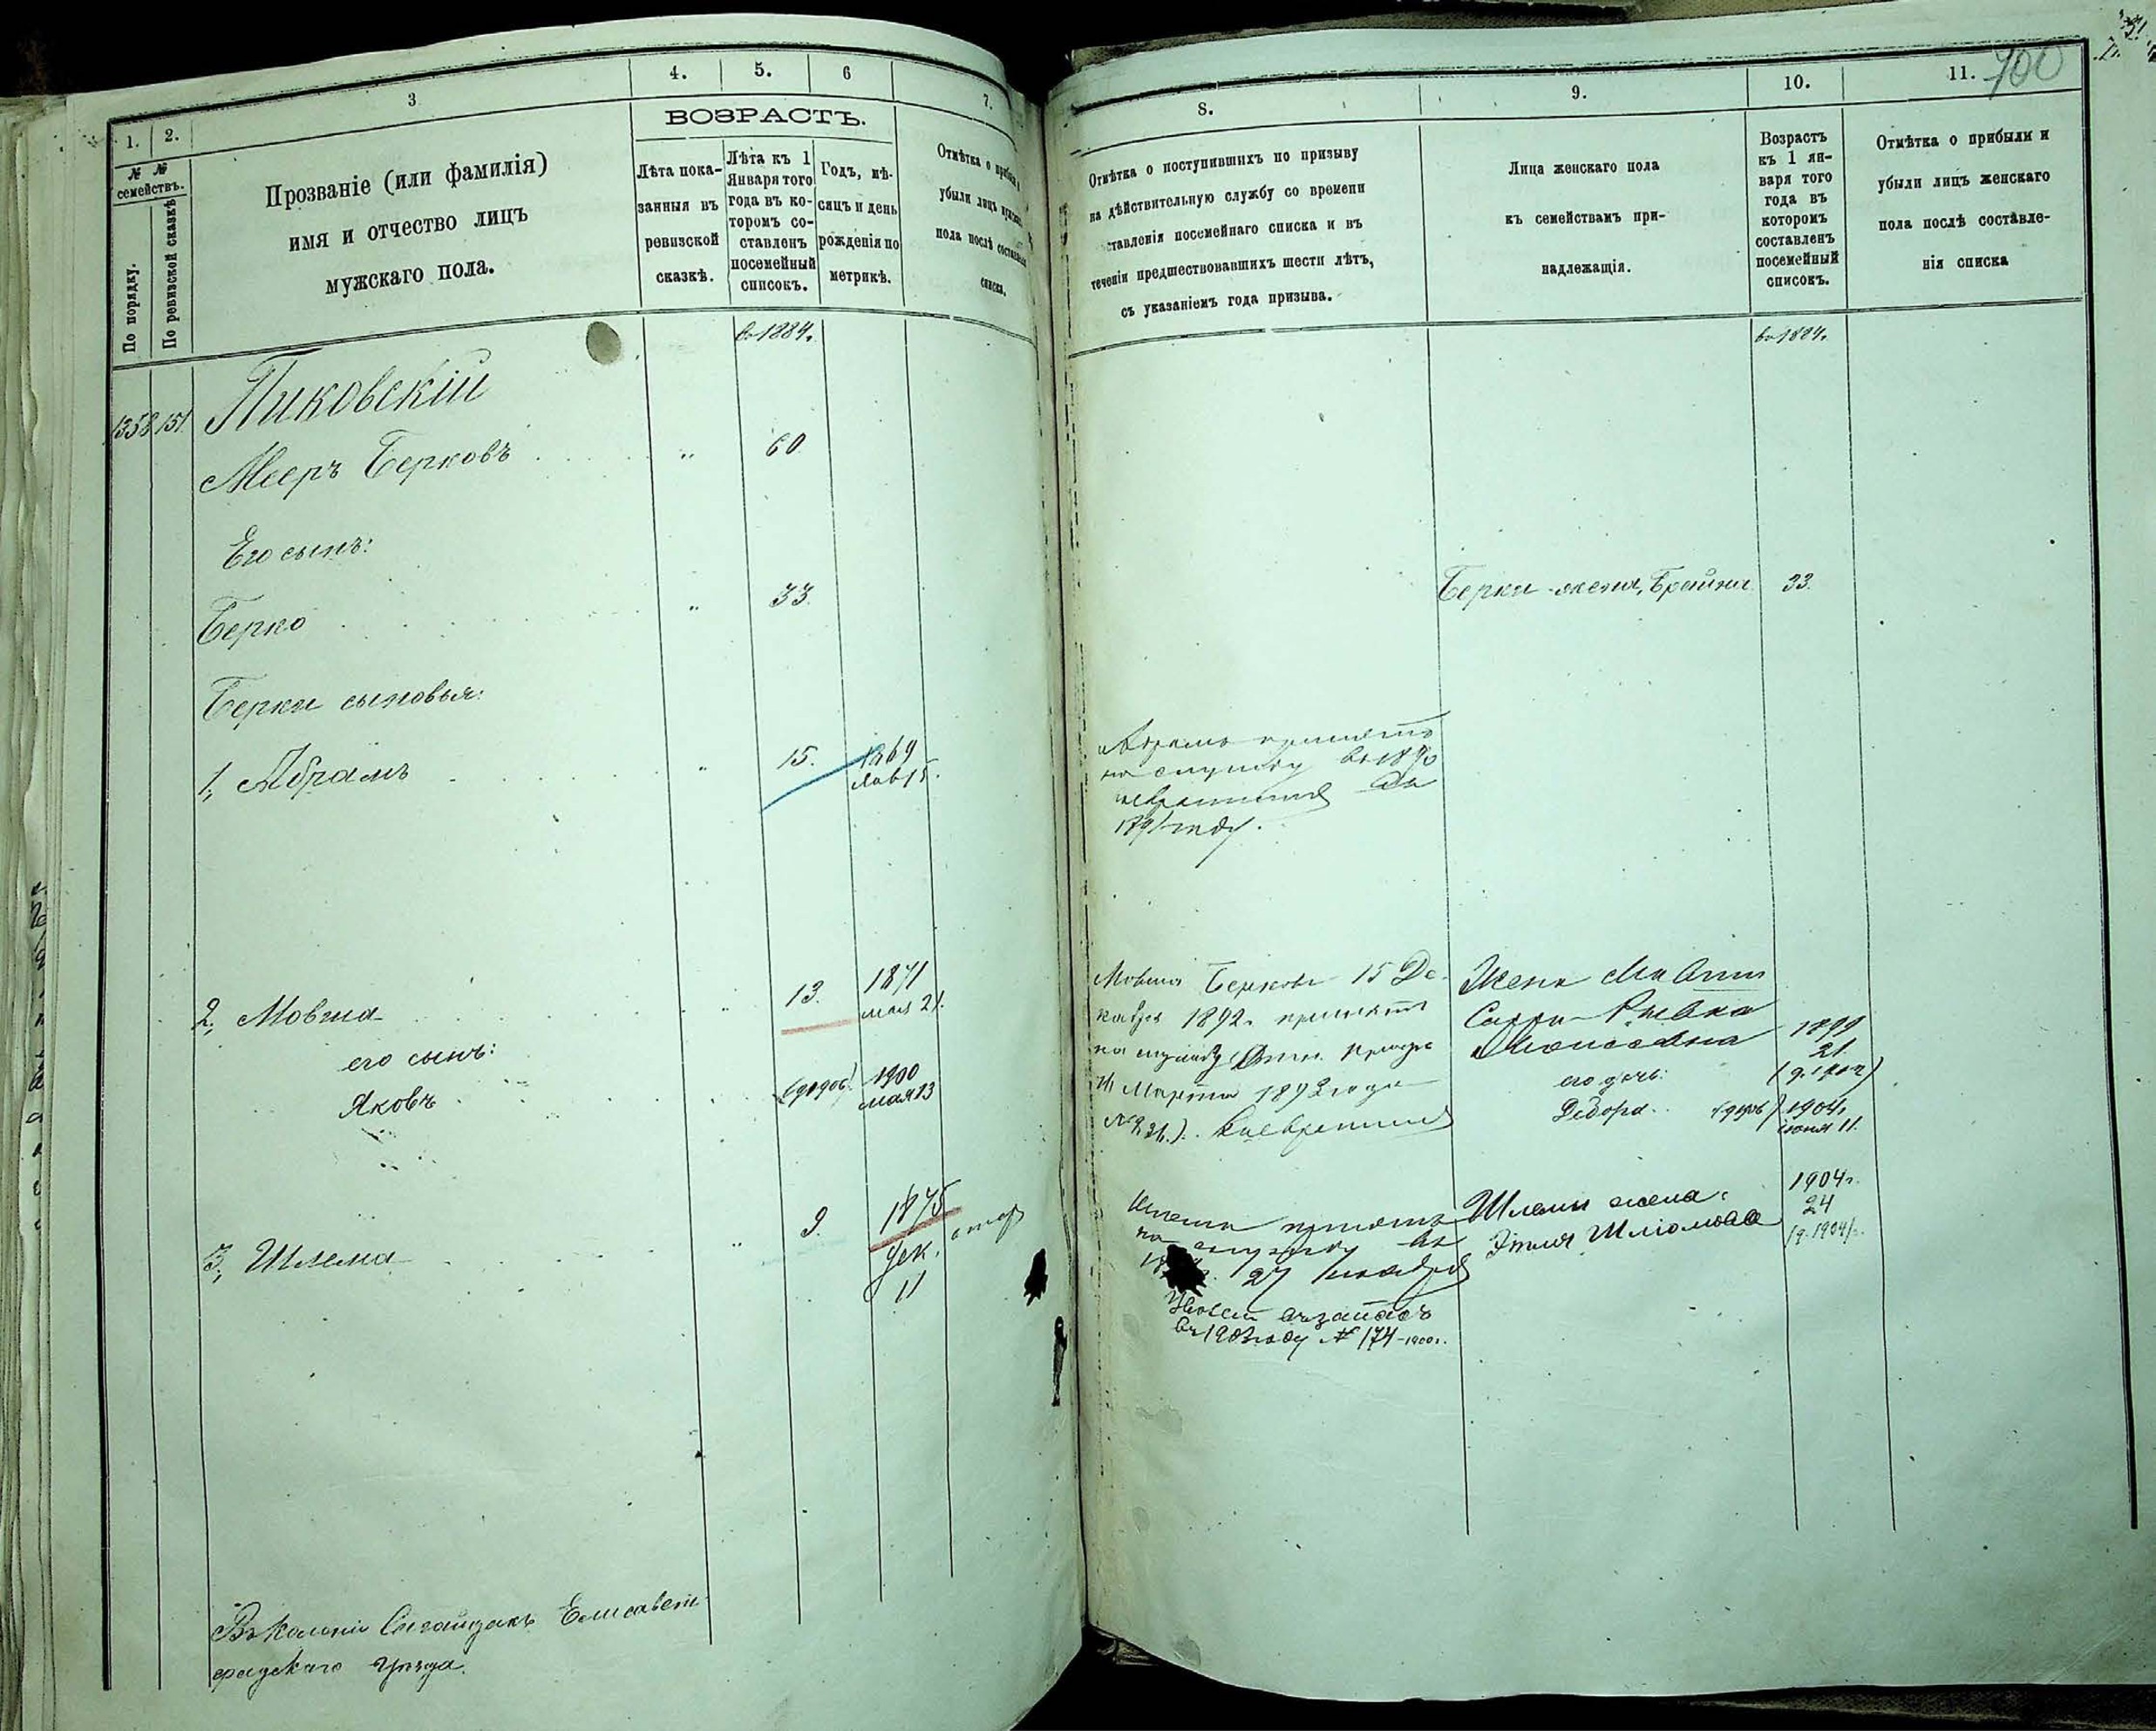 700
1.
2.
3
4.
5.
6
7.
№ №
семействъ.
По порядку.
По ревизской сказкѣ
Прозваніе (или фамилія)
имя и отчество лицъ
мужскаго пола.
ВОЗРАСТЪ.
Лѣта пока-
занныя въ
ревизской
сказкѣ.
Лѣта къ 1
Января того
года въ ко-
торомъ со-
ставленъ
посемейный
списокъ.
Годъ, мѣ-
сяцъ и день
рожденія по
метрикѣ.
Отмѣтка о
убыли лицъ
пола послѣ
списка.
въ 1884.
1358 151
Пиковскій
Мееръ Берковъ
" 60.
Его сынъ:
Берко
" 33.
Берки сыновья:
1, Абрамъ
" 15. 1869
Янв 15.
2, Мовша
" 13. 1871
мая 21.
его сынъ:
Яковъ
1900
мая 13
3, Шлема
" 9. 1875
дек.
11
Въ Колоніи Сагайдакъ Елисавет-
градскаго Уѣзда.
8.
9.
10.
11.
Отмѣтка о поступившихъ по призыву
на дѣйствительную службу со времени
ставленія посемейнаго списка и въ
теченіи предшествовавшихъ шести лѣтъ,
съ указаніемъ года призыва.
Лица женскаго пола
къ семействамъ при-
надлежащія.
Возрастъ
къ 1 ян-
варя того
года въ
которомъ
составленъ
посемейный
списокъ.
Отмѣтка о прибыли и
убыли лицъ женскаго
пола послѣ составле-
нія списка
въ 1884.
Берки жена, Брайна 33.
Абрамъ принятъ
на службу въ 1890
1891 году.
Мовша Берковъ 15 Де-
кабря 1892. принятъ
на службу
11 Марта 1893 года
Жена Мовши
Сарра-Рывка
Моисеевна
1899
21
его дочь:
Дебора 1904.
іюня 11.
Шлема принятъ
на службу въ
27 ноября
въ 1903 году № 174-1900г.
Шлемы жена
Этля Шліомовна
1904г.
24
(д. 1904)